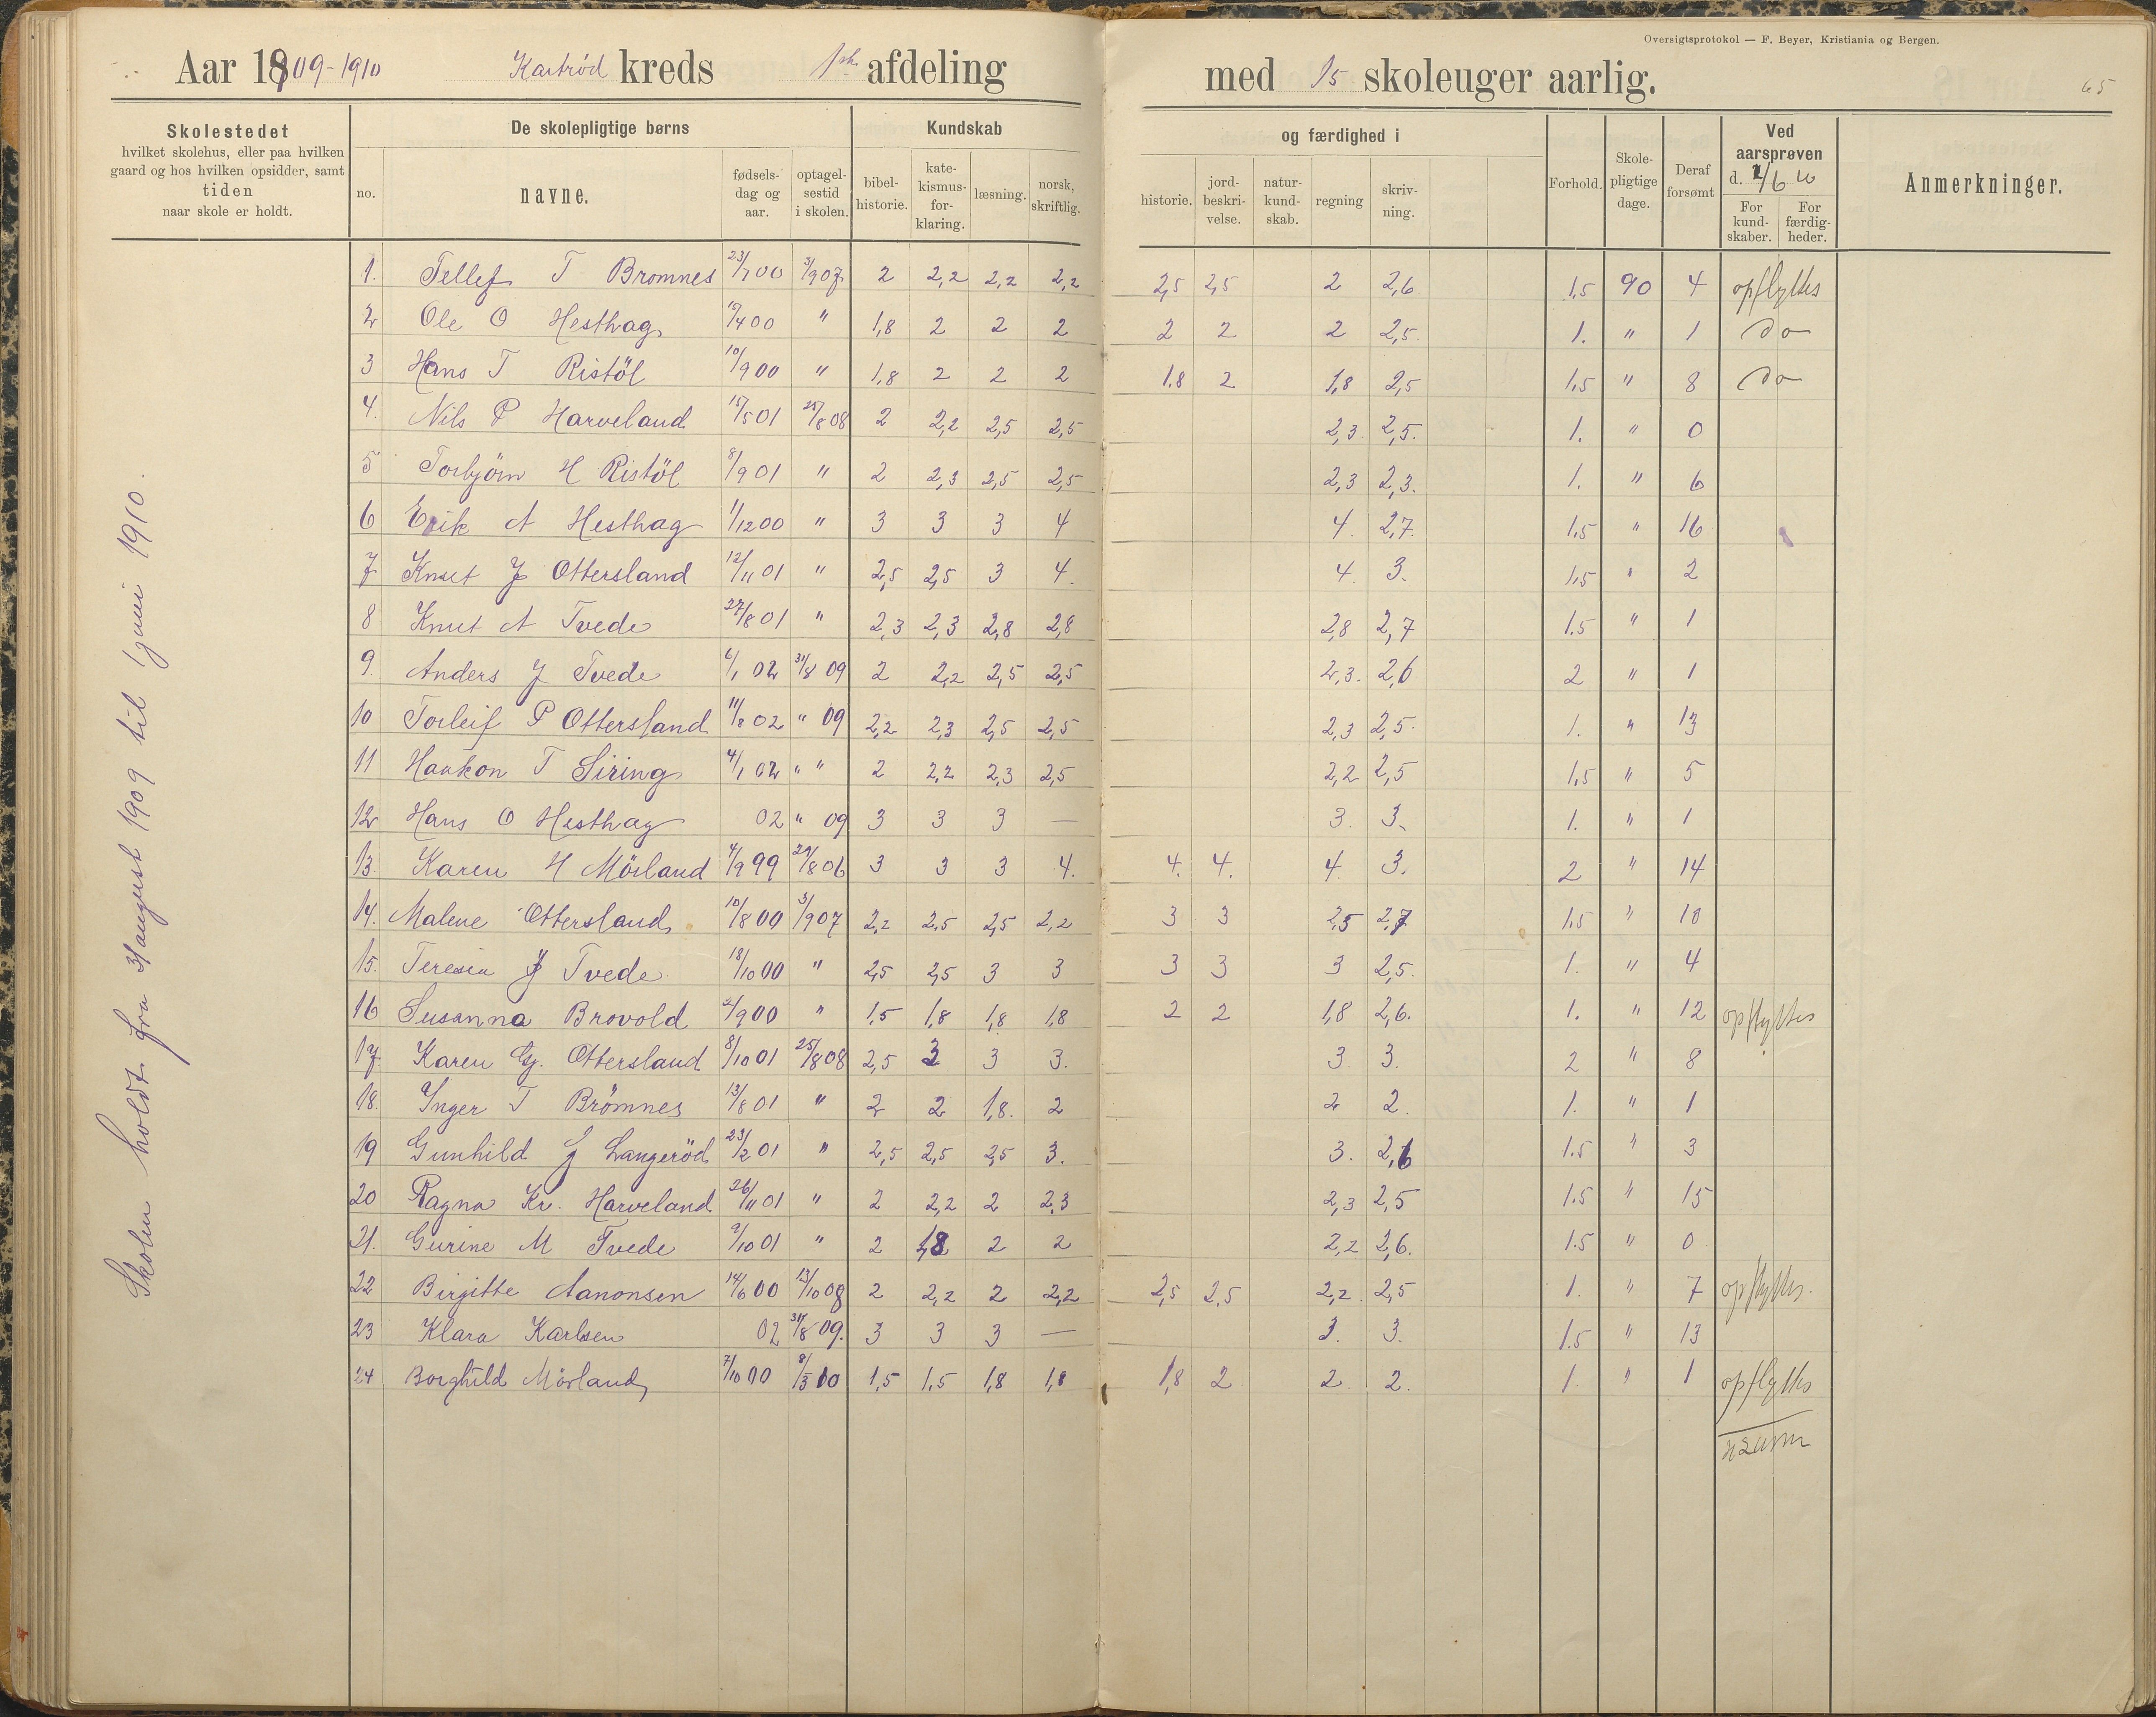 Oversigtsprotokol — F. Beyer, Kristiania og Bergen.
Aar 1909-1910 Kartrød kreds 1ste afdeling med 15 skoleuger aarlig. 65
Skolestedet
hvilket skolehus, eller paa hvilken
gaard og hos hvilken opsidder, samt
tiden
naar skole er holdt.
De skolepligtige børns
no. navne. fødsels-dag og aar. optagel-sestid i skolen.
Kundskab og færdighed i
bibel-historie. kate-kismus-for-klaring. læsning. norsk, skriftlig. historie. jord-beskri-velse. natur-kund-skab. regning skriv-ning.
Forhold. Skole-pligtige dage. Deraf forsømt
Ved aarsprøven d. 1/6 10
For kund-skaber. For færdig-heder.
Anmerkninger.
Skolen holdt fra 31 august 1909 til 1 juni 1910.
1. Tellef T Bromnes 23/7 00 3/9 07 2 2,2 2,2 2,2 2,5 2,5 2 2,6 1,5 90 4 opflyttes
2 Ole O Hesthag 17/4 00 " 1,8 2 2 2 2 2 2 2,5. 1. " 1 do
3 Hans T Ristöl 10/9 00 " 1,8 2 2 2 1.8 2 1,8 2,5 1,5 " 8 do
4. Nils P Harveland 15/5 01 25/8 08 2 2,2 2,5 2,5 2,3. 2,5. 1. " 0
5 Torbjörn H Ristöl 8/9 01 " 2 2,3 2,5 2,5 2,3 2,3. 1. " 6
6 Erik A Hesthag 1/12 00 " 3 3 3 4 4. 2,7. 1,5 " 16
7 Knut J Ottersland 12/11 01 " 2,5 2,5 3 4. 4. 3. 1,5 " 2
8 Knut A Tvede 27/8 01 " 2,3 2,3 2,8 2,8 2,8 2,7 1.5 " 1
9. Anders J Tvede 6/1 02 31/8 09 2 2,2 2,5 2,5 2,3. 2,6 2 " 1
10 Torleif P Ottersland 11/8 02 " 09 2,2 2,3 2,5 2,5 2,3 2,5. 1. " 13
11 Haakon T Siring 4/1 02 " " 2 2,2 2,3 2,5 2,2 2,5 1,5 " 5
12 Hans O Hesthag 02 " 09 3 3 3 — 3. 3. 1. " 1
13. Karen H Mörland 4/9 99 29/8 06 3 3 3 4. 4. 4. 4. 3. 2 " 14
14. Malene Ottersland 10/8 00 3/9 07 2,2 2,5 2,5 2,2 3 3 2,5 2,7 1,5 " 10
15. Teresia J Tvede 18/10 00 " 2,5 2,5 3 3 3 3 3 2,5. 1. " 4
16 Susanna Brovold 2/9 00 " 1,5 1,8 1,8 1,8 2 2 1,8 2,6. 1. " 12 opflyttes
17. Karen G. Ottersland 8/10 01 25/8 08 2,5 3 3 3. 3. 3. 2 " 8
18. Inger T Brömnes 13/8 01 " 2 2 1,8. 2 2 2. 1. " 1
19 Gunhild J Langeröd 23/2 01 " 2,5 2,5 2,5 3. 3. 2,6 1.5 " 3
20 Ragna Kr. Harveland 26/11 01 " 2 2,2 2 2,3 2,3 2,5 1.5 " 15
21. Gurine M Tvede 9/10 01 " 2 1,8 2 2 2,2 2,6. 1.5 " 0
22 Birgitte Aanonsen 14/6 00 13/10 08 2 2,2 2 2,2 2,5 2,5 2,2 2,5 1. " 7 opflyttes.
23 Klara Karlsen 02 31/8 09. 3 3 3 — 3. 3. 1.5 " 13
24 Borghild Mörland 7/10 00 8/3 10 1,5 1.5 1,8 1,8 1,8 2 2. 2. 1. " 1 opflyttes